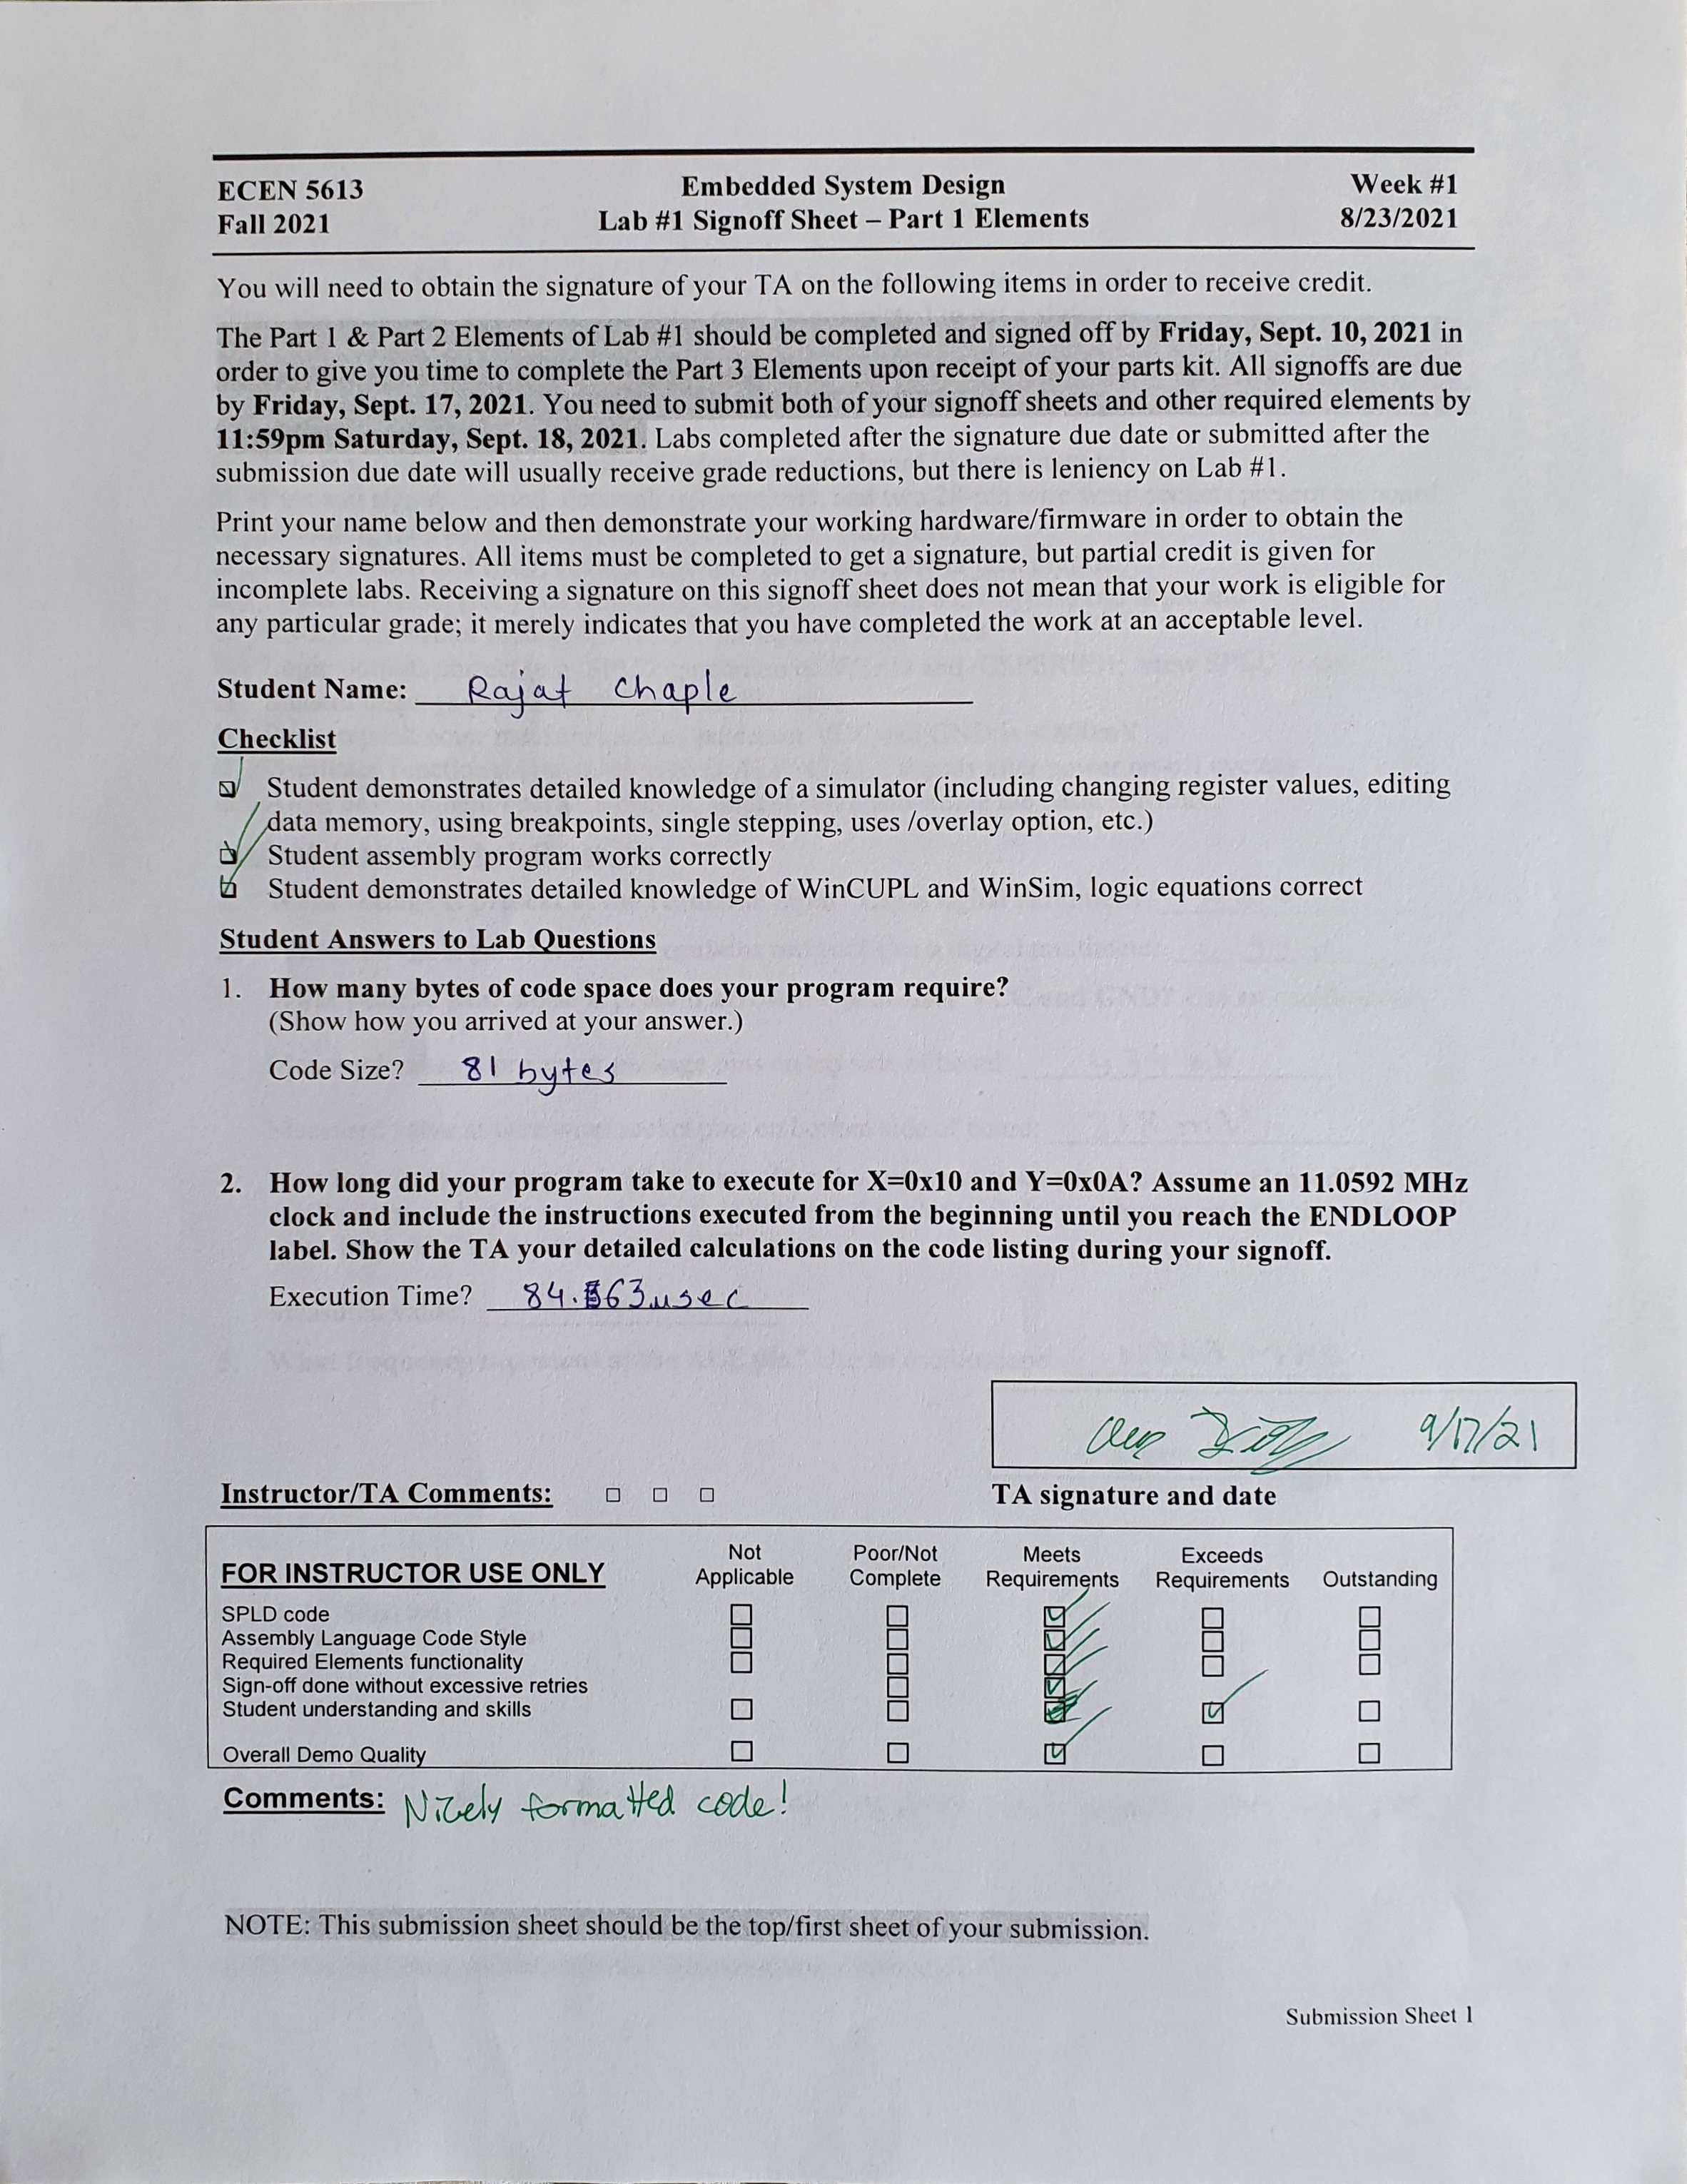 ECEN 5613 Embedded System Design Week #1
Fall 2021 Lab #1 Signoff Sheet – Part 1 Elements 8/23/2021
You will need to obtain the signature of your TA on the following items in order to receive credit.
The Part 1 & Part 2 Elements of Lab #1 should be completed and signed off by Friday, Sept. 10, 2021 in
order to give you time to complete the Part 3 Elements upon receipt of your parts kit. All signoffs are due
by Friday, Sept. 17, 2021. You need to submit both of your signoff sheets and other required elements by
11:59pm Saturday, Sept. 18, 2021. Labs completed after the signature due date or submitted after the
submission due date will usually receive grade reductions, but there is leniency on Lab #1.
Print your name below and then demonstrate your working hardware/firmware in order to obtain the
necessary signatures. All items must be completed to get a signature, but partial credit is given for
incomplete labs. Receiving a signature on this signoff sheet does not mean that your work is eligible for
any particular grade; it merely indicates that you have completed the work at an acceptable level.
Student Name: Rajat Chaple
Checklist
Student demonstrates detailed knowledge of a simulator (including changing register values, editing
data memory, using breakpoints, single stepping, uses /overlay option, etc.)
Student assembly program works correctly
Student demonstrates detailed knowledge of WinCUPL and WinSim, logic equations correct
Student Answers to Lab Questions
1. How many bytes of code space does your program require?
(Show how you arrived at your answer.)
Code Size? 81 bytes
2. How long did your program take to execute for X=0x10 and Y=0x0A? Assume an 11.0592 MHz
clock and include the instructions executed from the beginning until you reach the ENDLOOP
label. Show the TA your detailed calculations on the code listing during your signoff.
Execution Time?
9/17/21
Instructor/TA Comments: TA signature and date
FOR INSTRUCTOR USE ONLY Not Applicable Poor/Not Complete Meets Requirements Exceeds Requirements Outstanding
SPLD code
Assembly Language Code Style
Required Elements functionality
Sign-off done without excessive retries
Student understanding and skills
Overall Demo Quality
Comments: Nicely formatted code!
NOTE: This submission sheet should be the top/first sheet of your submission.
Submission Sheet 1